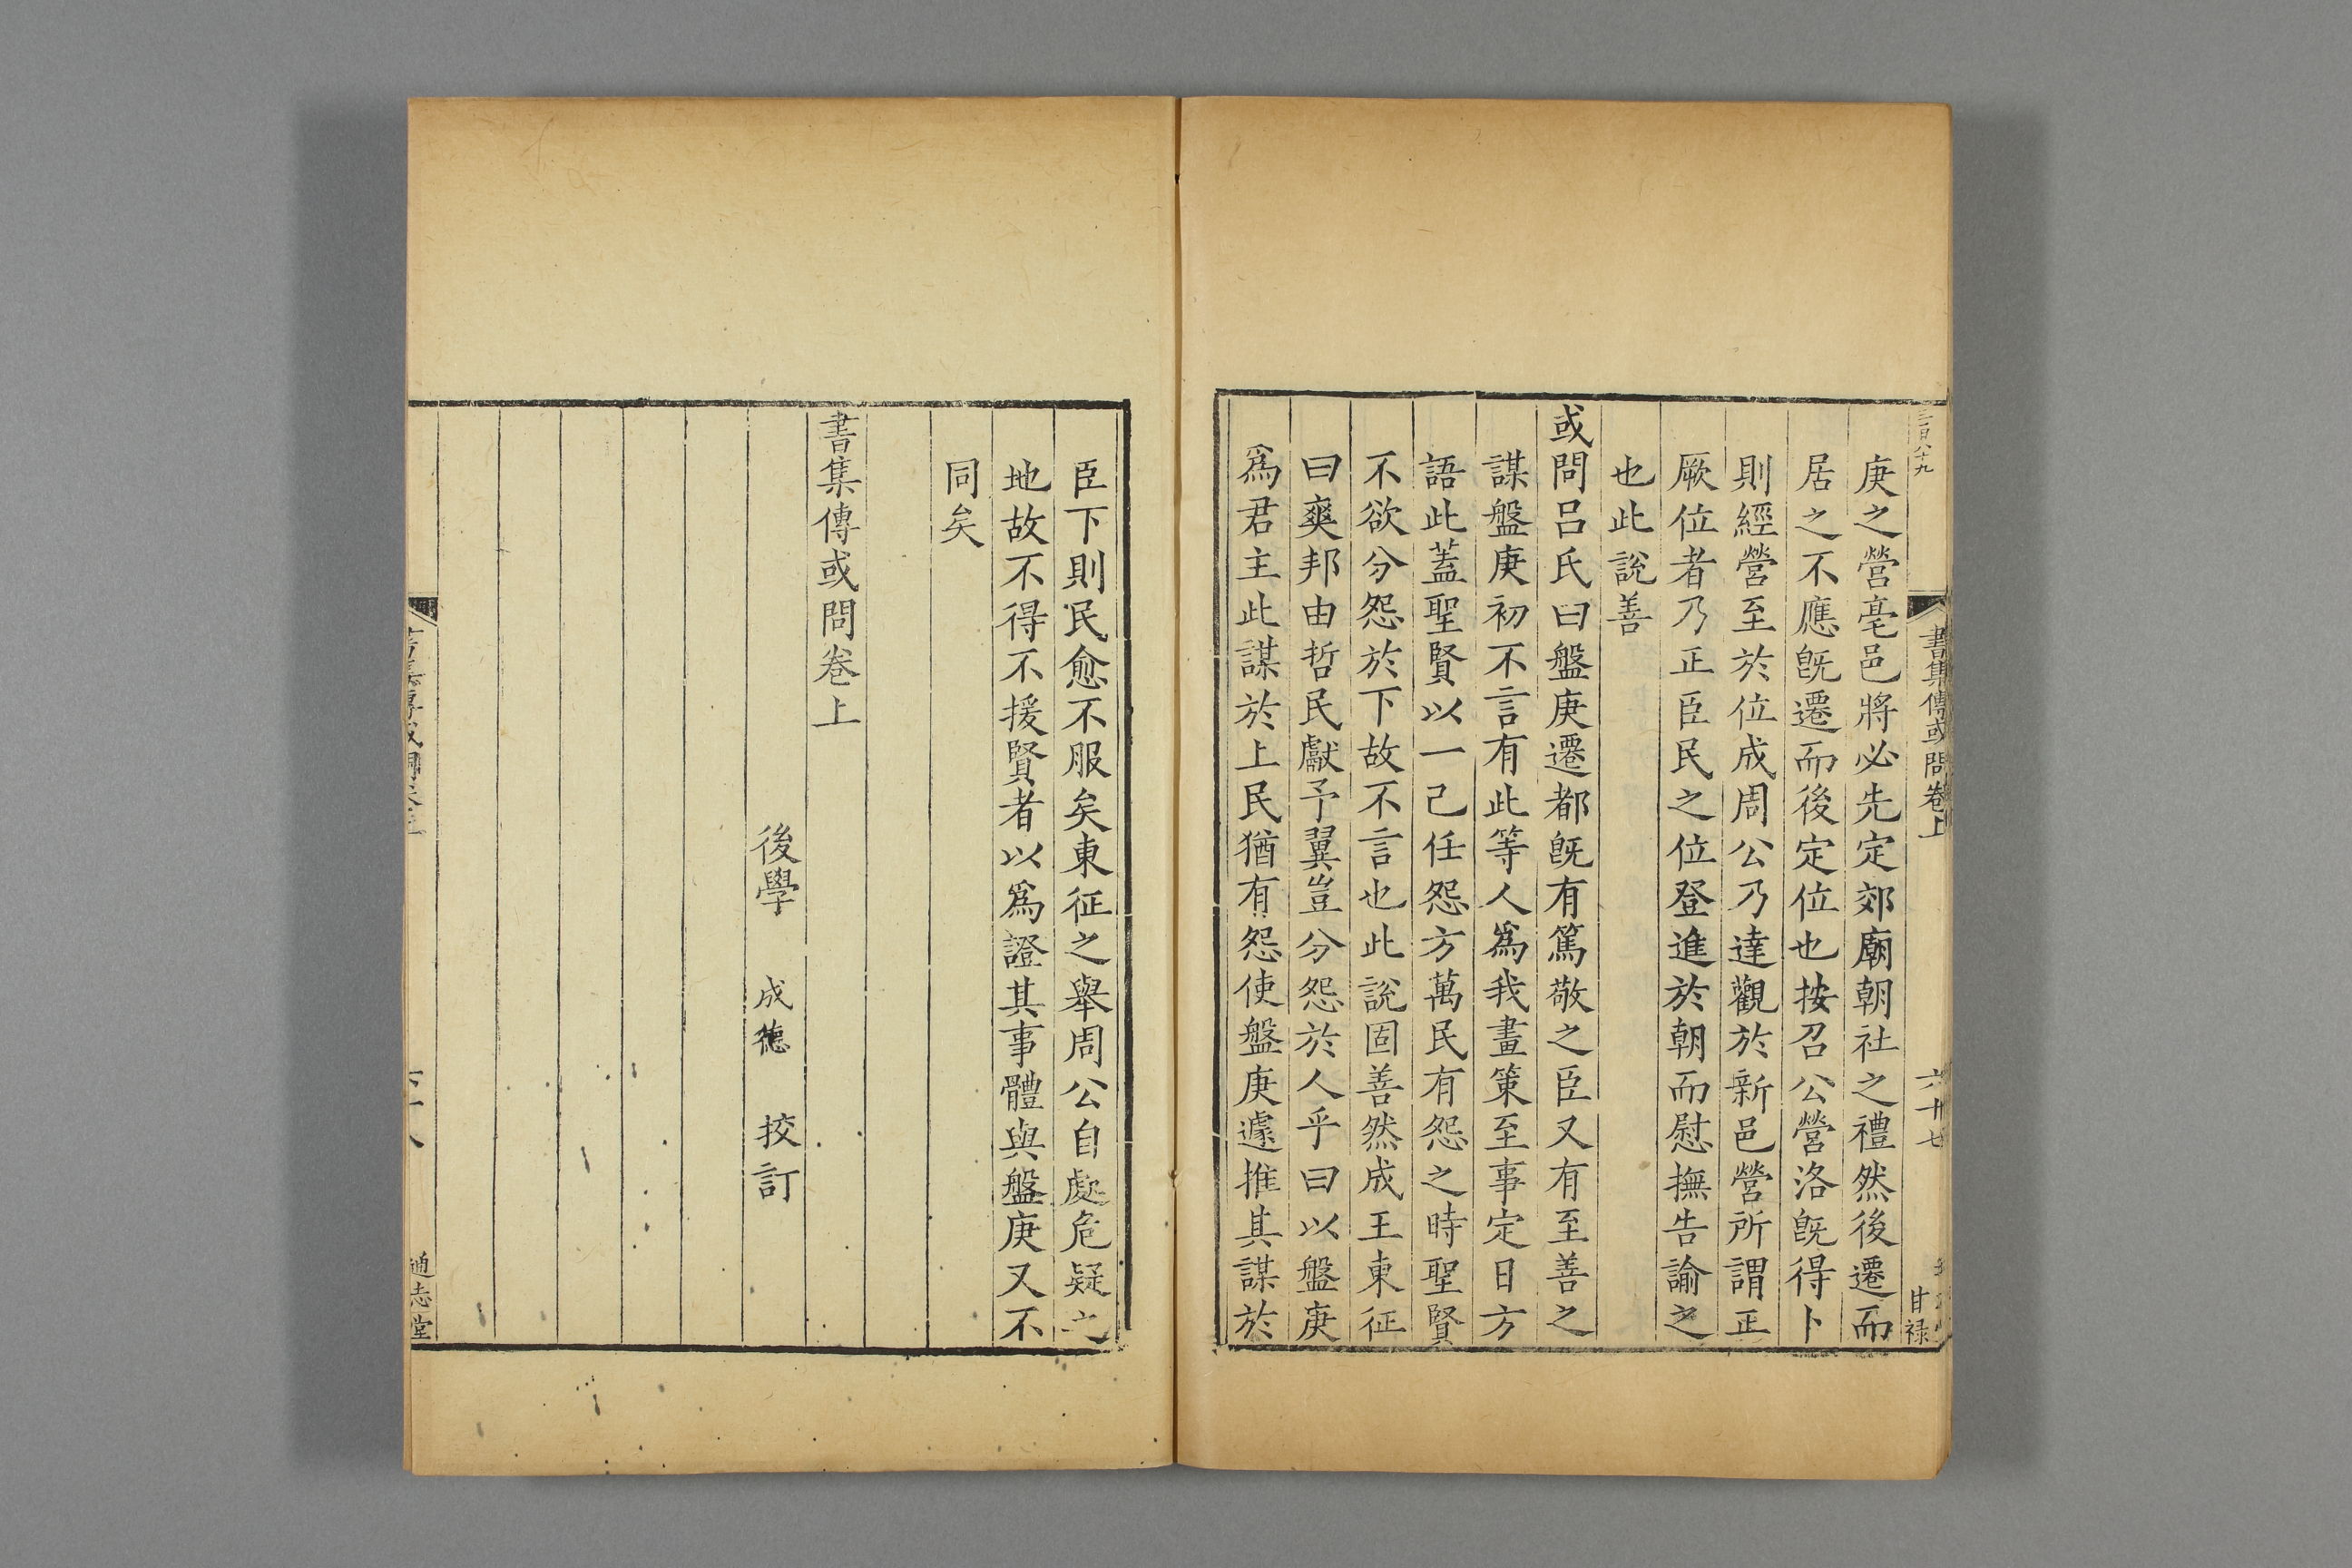 書集傳或問卷上
六十七
甘禄
庚之營亳邑將必先定郊廟朝社之禮然後遷而
居之不應旣遷而後定位也按召公營洛旣得卜
則經營至於位成周公乃達觀於新邑營所謂正
厥位者乃正臣民之位登進於朝而慰撫告諭之
也此說善
或問呂氏曰盤庚遷都旣有篤敬之臣又有至善之
謀盤庚初不言有此等人爲我畫策至事定日方
語此蓋聖賢以一己任怨方萬民有怨之時聖賢
不欲分怨於下故不言也此說固善然成王東征
曰爽邦由哲民獻予翼豈分怨於人乎曰以盤庚
爲君主此謀於上民猶有怨使盤庚遽推其謀於
臣下則民愈不服矣東征之舉周公自處危疑之
地故不得不援賢者以爲證其事體與盤庚又不
同矣
書集傳或問卷上
後學 成德 挍訂
通志堂